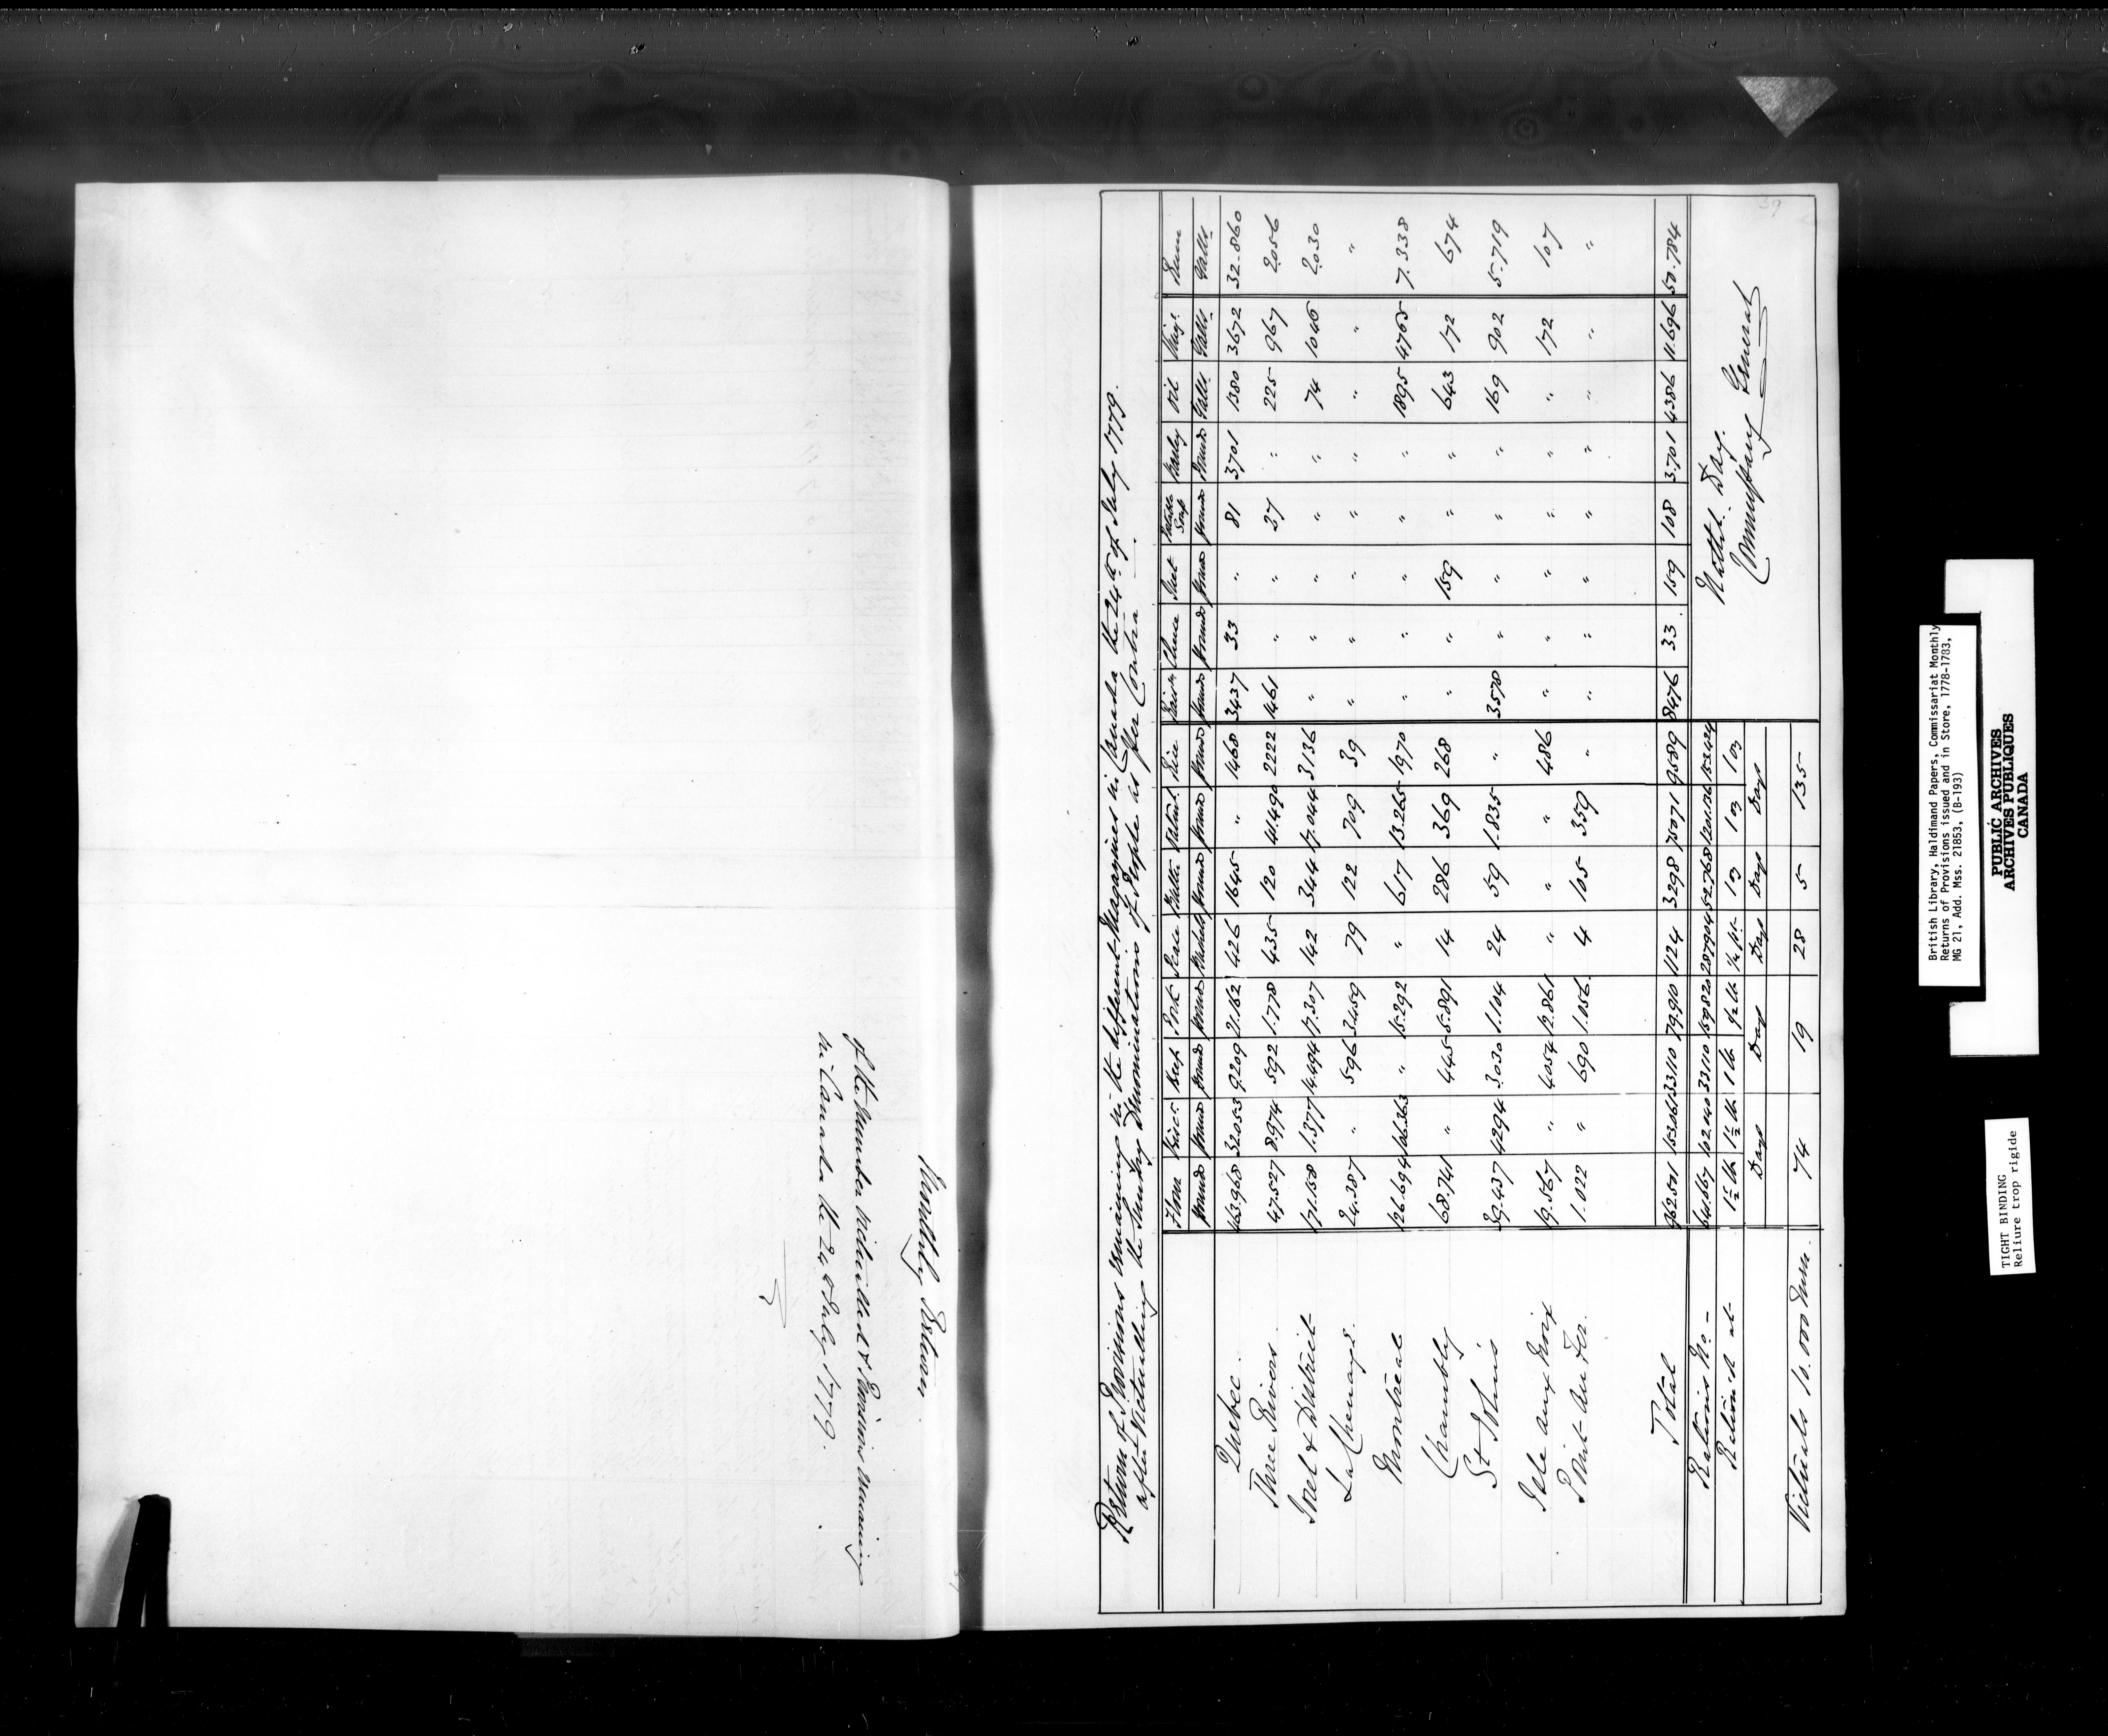 Monthly Return
of the Number Victualled & Provisions remaining
in Canada the 24th July 1779.
Return of Provisions remaining in the different Magazines in Canada the 24th of July 1779.
after Victualling the Sundry Denominations of People as per Contra
Flour Bisct. Beef Pork Pease Butter Oatml. Rice Raisns Suet Barley Oil Vinegr. Rum
Pounds Pounds Pounds Pounds Bushels Pounds Pounds Pounds Pounds Pounds Pounds Pounds Pounds Galls. Galls. Galls.
Quebec. 463.968 32.053 9209 21.162 426 1645 " 1468 3437 33 " 81 3701 1380 3672 32.860
Three Rivers. 47.527 8.974 592 1.778 435 120 41.490 2222 1461 " " 27 " 225 967 2.056
Sorel & District 171.158 1.377 14.494 17.307 142 344 17.044 3136 " " " " " 74 1046 2.030
La Chenaye. 24.387 " 596 3.459 79 122 709 39 " " " " " " " "
Montreal 126.694 106.363 " 15.292 " 617 13.265 1970 " " " " " 1895 4765 7.338
Chambly 68.741 " 445 5.891 14 286 369 268 " " 159 " " 643 172 674
St Johns 39.437 4294 3030 1.104 24 59 1.835 " 3578 " " " " 169 902 5.719
Isle aux Noix 19.567 " 4054 12.861 " " " 486 " " " " " " 172 107
Point au Fer. 1.022 " 690 1.056 4 105 359 " " " " " " " " "
Total 962.501 153.061 33110 79.910 1124 3298 75071 9589 8476 33 159 108 3.701 4386 11.696 50.784
Rations No. 641.667 102.040 33110 159.820 287.904 52.768 1201.136 153.424
Rationed at 1½ lb 1½ lb 1 lb ½ lb ¼ pt. 1 oz 1 oz 1 oz
Days Days Days Days Days
Victuals 10.000 Men. 74 19 28 5 135
Nathl. Day.
Commissary General
39
British Library, Haldimand Papers, Commissariat Monthly
Returns of Provisions issued and in Store, 1778-1783,
MG 21, Add. Mss. 21853, (B-193)
PUBLIC ARCHIVES
ARCHIVES PUBLIQUES
CANADA
TIGHT BINDING
Reliure trop rigide